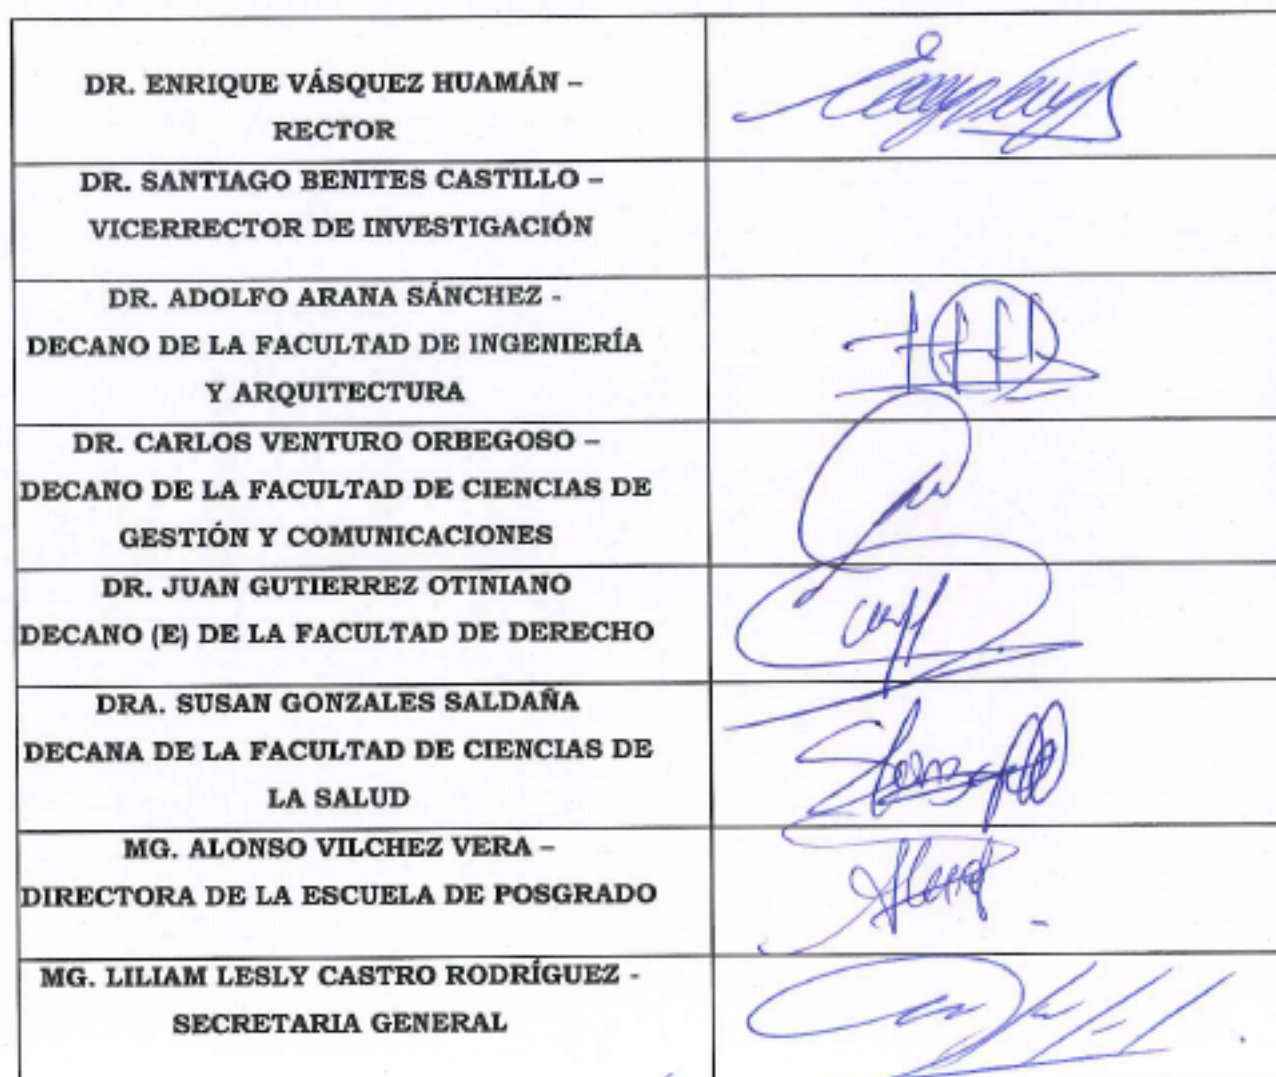 DR. ENRIQUE VÁSQUEZ HUAMÁN –
RECTOR
DR. SANTIAGO BENITES CASTILLO –
VICERRECTOR DE INVESTIGACIÓN
DR. ADOLFO ARANA SÁNCHEZ -
DECANO DE LA FACULTAD DE INGENIERÍA
Y ARQUITECTURA
DR. CARLOS VENTURO ORBEGOSO –
DECANO DE LA FACULTAD DE CIENCIAS DE
GESTIÓN Y COMUNICACIONES
DR. JUAN GUTIERREZ OTINIANO
DECANO (E) DE LA FACULTAD DE DERECHO
DRA. SUSAN GONZALES SALDAÑA
DECANA DE LA FACULTAD DE CIENCIAS DE
LA SALUD
MG. ALONSO VILCHEZ VERA –
DIRECTORA DE LA ESCUELA DE POSGRADO
MG. LILIAM LESLY CASTRO RODRÍGUEZ -
SECRETARIA GENERAL